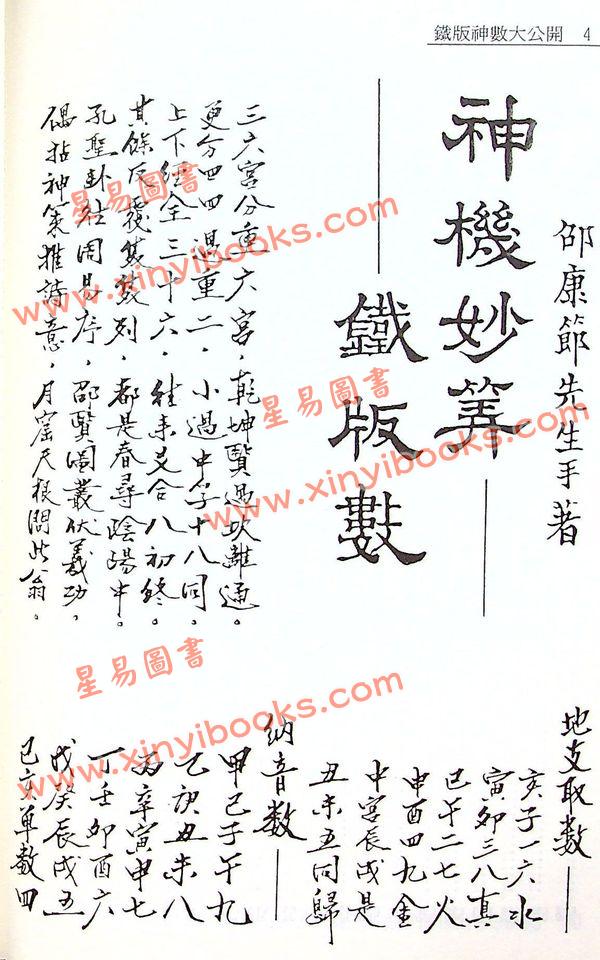 鐵版神數大公開 4
邵康節先生手著
神機妙筭
鐵版數
三六宮分重六宮，乾坤賢過坎離通。
更分四四過重二，小過中孚十八同。
上下經全三十六，往來爻合八初終。
其餘反覆隻數列，都是春尋陰陽中。
孔聖卦結周易序，邵賢圖叢伏羲功，
偶拈神策推詩意，月窟天根問此翁。
地支取數
亥子一六水
寅卯三八真
巳午二七火
申酉四九金
中宮辰戌是
丑未五同歸
納音數
甲己子午九
乙庚丑未八
丙辛寅申七
丁壬卯酉六
戊癸辰戌五
巳亥單數四
星易圖書
www.xinyibooks.com
星易圖書
www.xinyibooks.com
星易圖書
www.xinyibooks.com